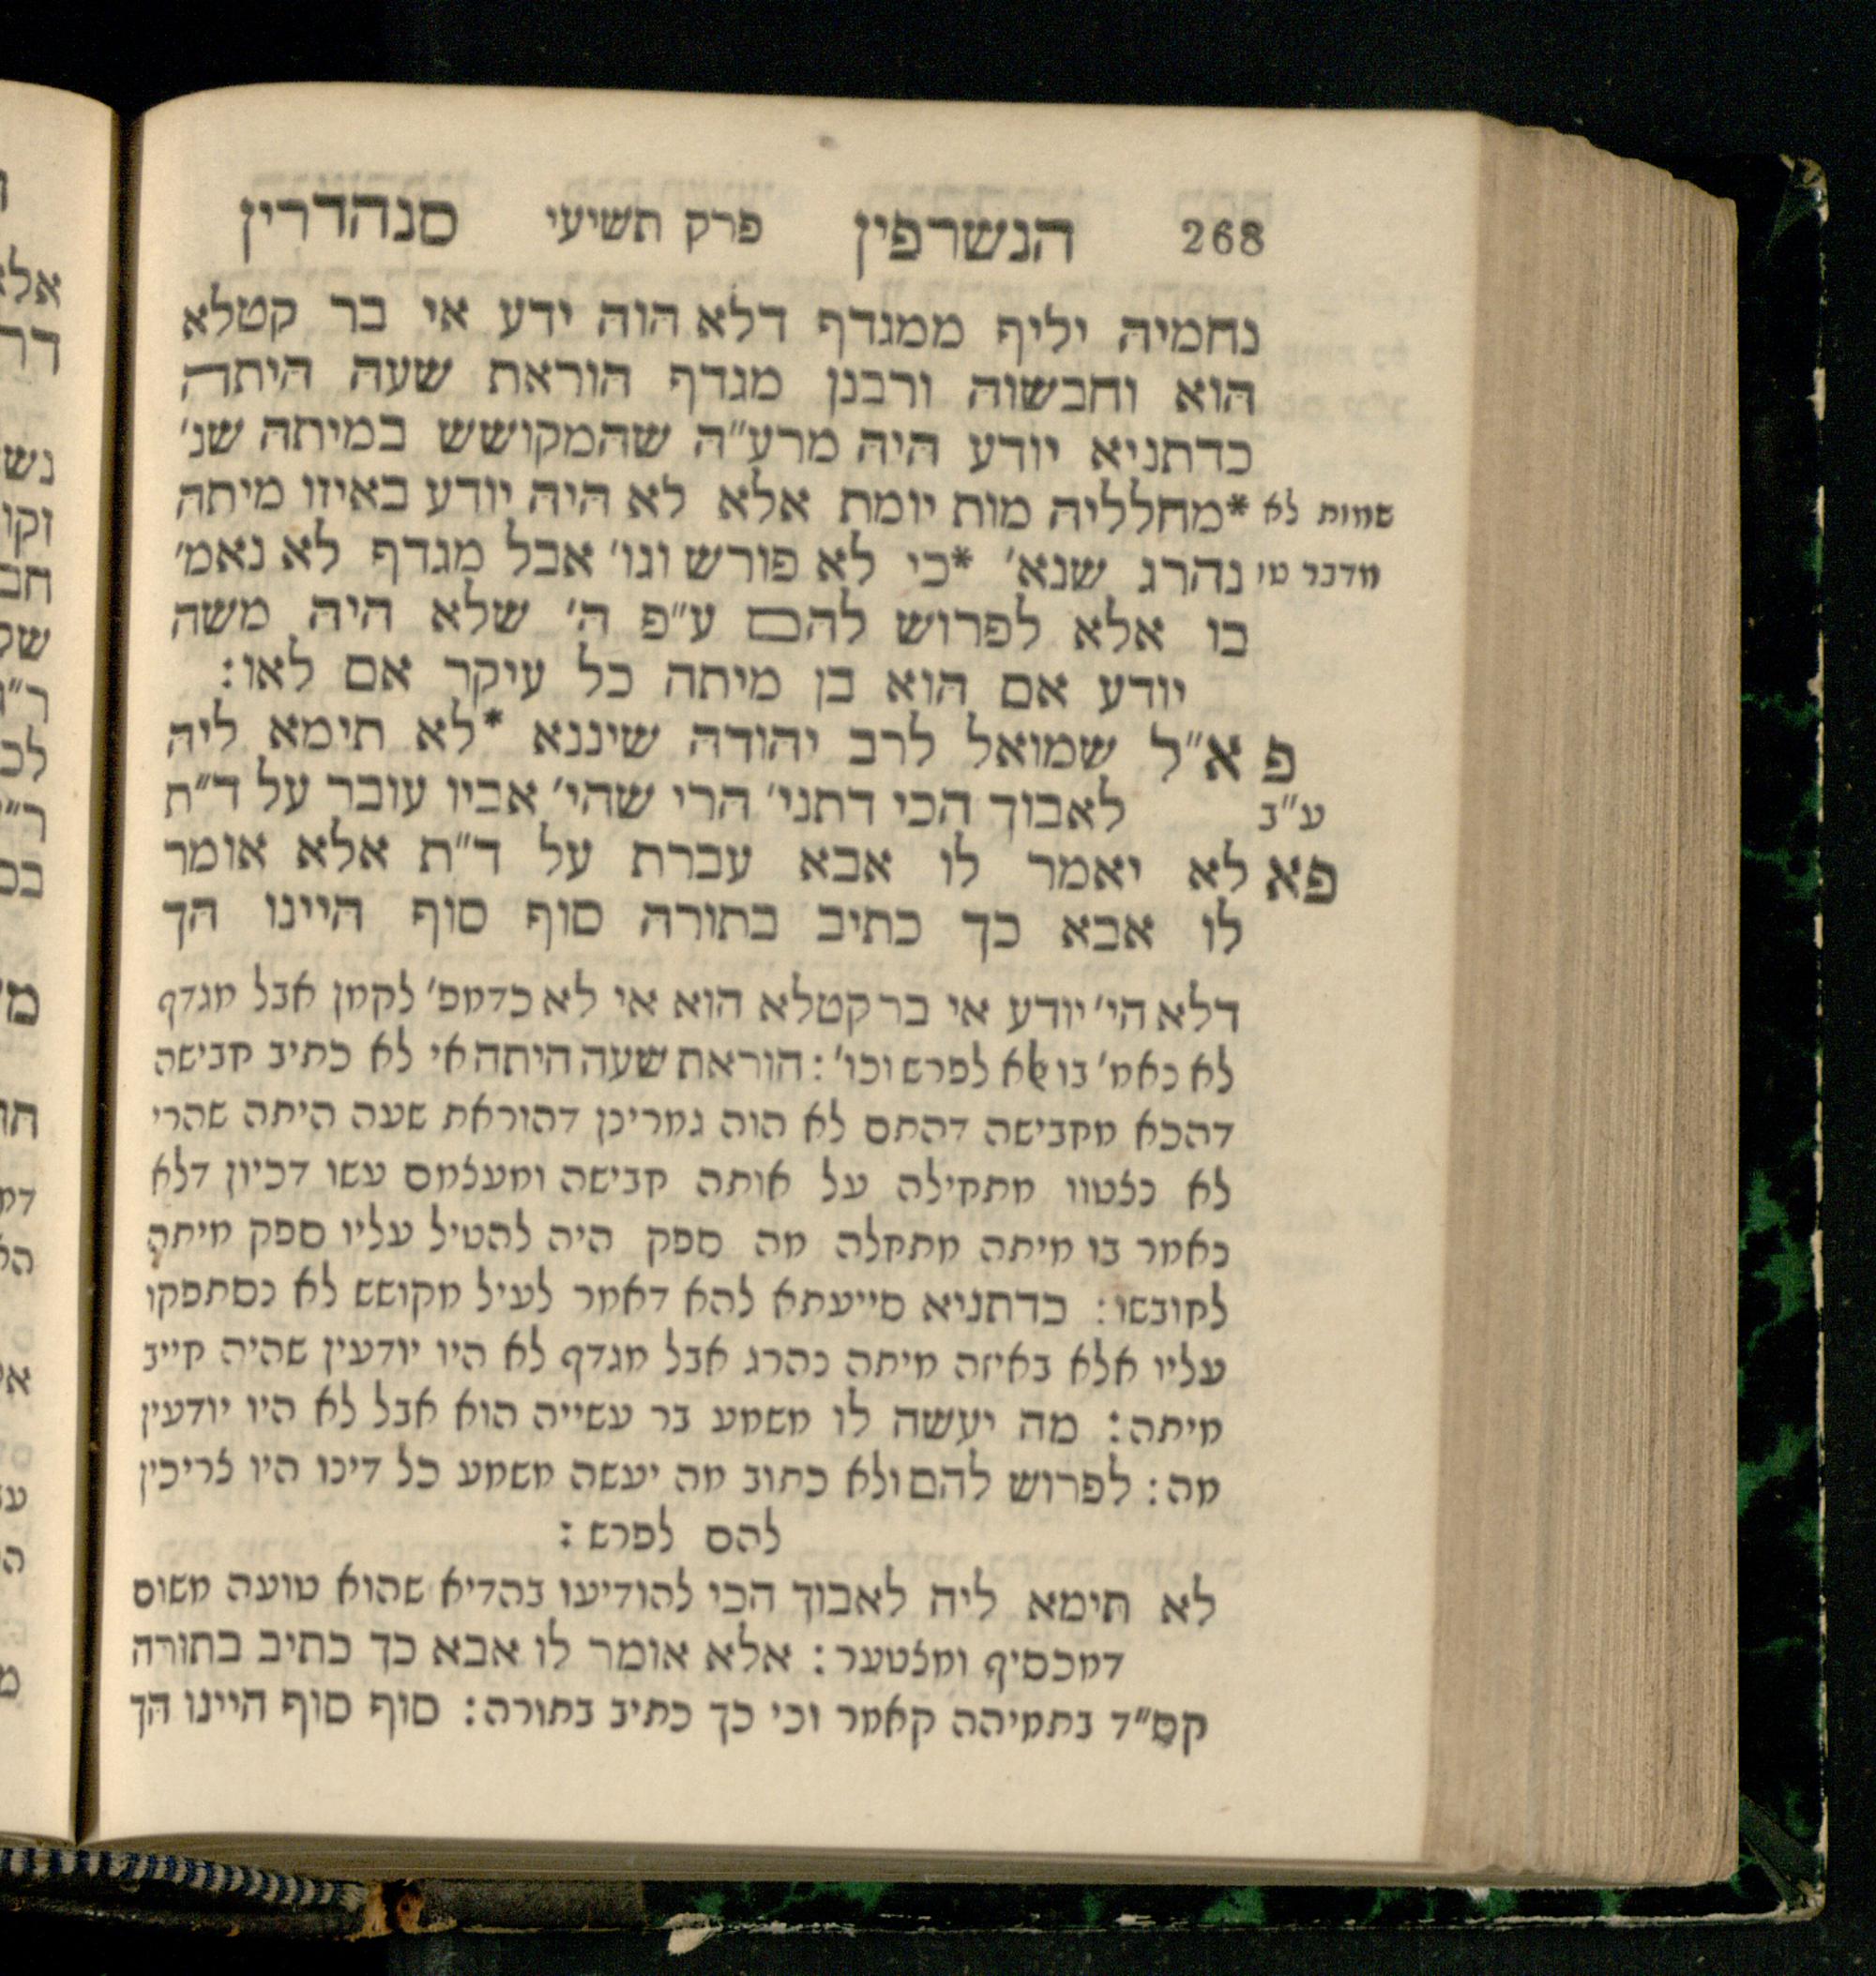 268 הנשרפין פרק תשיעי סנהדרין
נחמיה יליף ממגדף דלא הוה ידע אי בר קטלא
הוא וחבשוה ורבנן מגדף הוראת שעה היתה
כדתניא יודע היה מרע״ה שהמקושש במיתה שנ׳
שמות לא *מחלליה מות יומת אלא לא היה יודע באיזו מיתה
מדבר טו נהרג שנא׳ *כי לא פורש וגו׳ אבל מגדף לא נאמ׳
בו אלא לפרוש להם ע״פ ה׳ שלא היה משה
יודע אם הוא בן מיתה כל עיקר אם לאו:
פ א״ל שמואל לרב יהודה שיננא *לא תימא ליה
ע״ב לאבוך הכי דתני׳ הרי שהי׳ אביו עובר על ד״ת
פא לא יאמר לו אבא עברת על ד״ת אלא אומר
לו אבא כך כתיב בתורה סוף סוף היינו הך
דלא הי׳ יודע אי בר קטלא הוא אי לא כדמפ׳ לקמן אבל מגדף
לא נאמ׳ בו אלא לפרש וכו׳: הוראת שעה היתה אי לא כתיב חבישה
דהכא מחבישה דהתם לא הוה גמרינן דהוראת שעה היתה שהרי
לא נצטוו מתחילה על אותה חבישה ומעצמם עשו דכיון דלא
נאמר בו מיתה מתחלה מה ספק היה להטיל עליו ספק מיתה
לחובשו: כדתניא סייעתא להא דאמר לעיל מקושש לא נסתפקו
עליו אלא באיזה מיתה נהרג אבל מגדף לא היו יודעין שהיה חייב
מיתה: מה יעשה לו משמע בר עשייה הוא אבל לא היו יודעין
מה: לפרוש להם ולא כתוב מה יעשה משמע כל דינו היו צריכין
להם לפרש:
לא תימא ליה לאבוך הכי להודיעו בהדיא שהוא טועה משום
דמכסיף ומצטער: אלא אומר לו אבא כך כתיב בתורה
קס״ד בתמיהה קאמר וכי כך כתיב בתורה: סוף סוף היינו הך